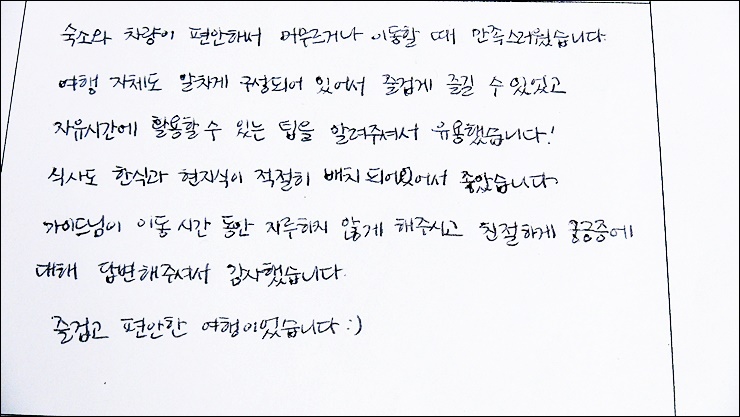 숙소와 차량이 편안해서 머무르거나 이동할 때 만족스러웠습니다.
여행 자체도 알차게 구성되어 있어서 즐겁게 즐길 수 있었고
자유시간에 활용할 수 있는 팁을 알려주셔서 유용했습니다!
식사도 한식과 현지식이 적절히 배치 되어있어서 좋았습니다
가이드님이 이동 시간 동안 지루하지 않게 해주시고 친절하게 궁금증에
대해 답변해주셔서 감사했습니다.
즐겁고 편안한 여행이었습니다 :)